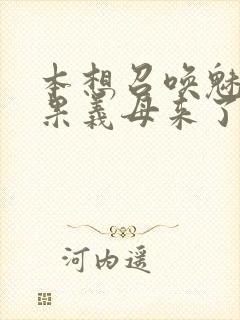 本想召唤魅
果义母来了
河内遥